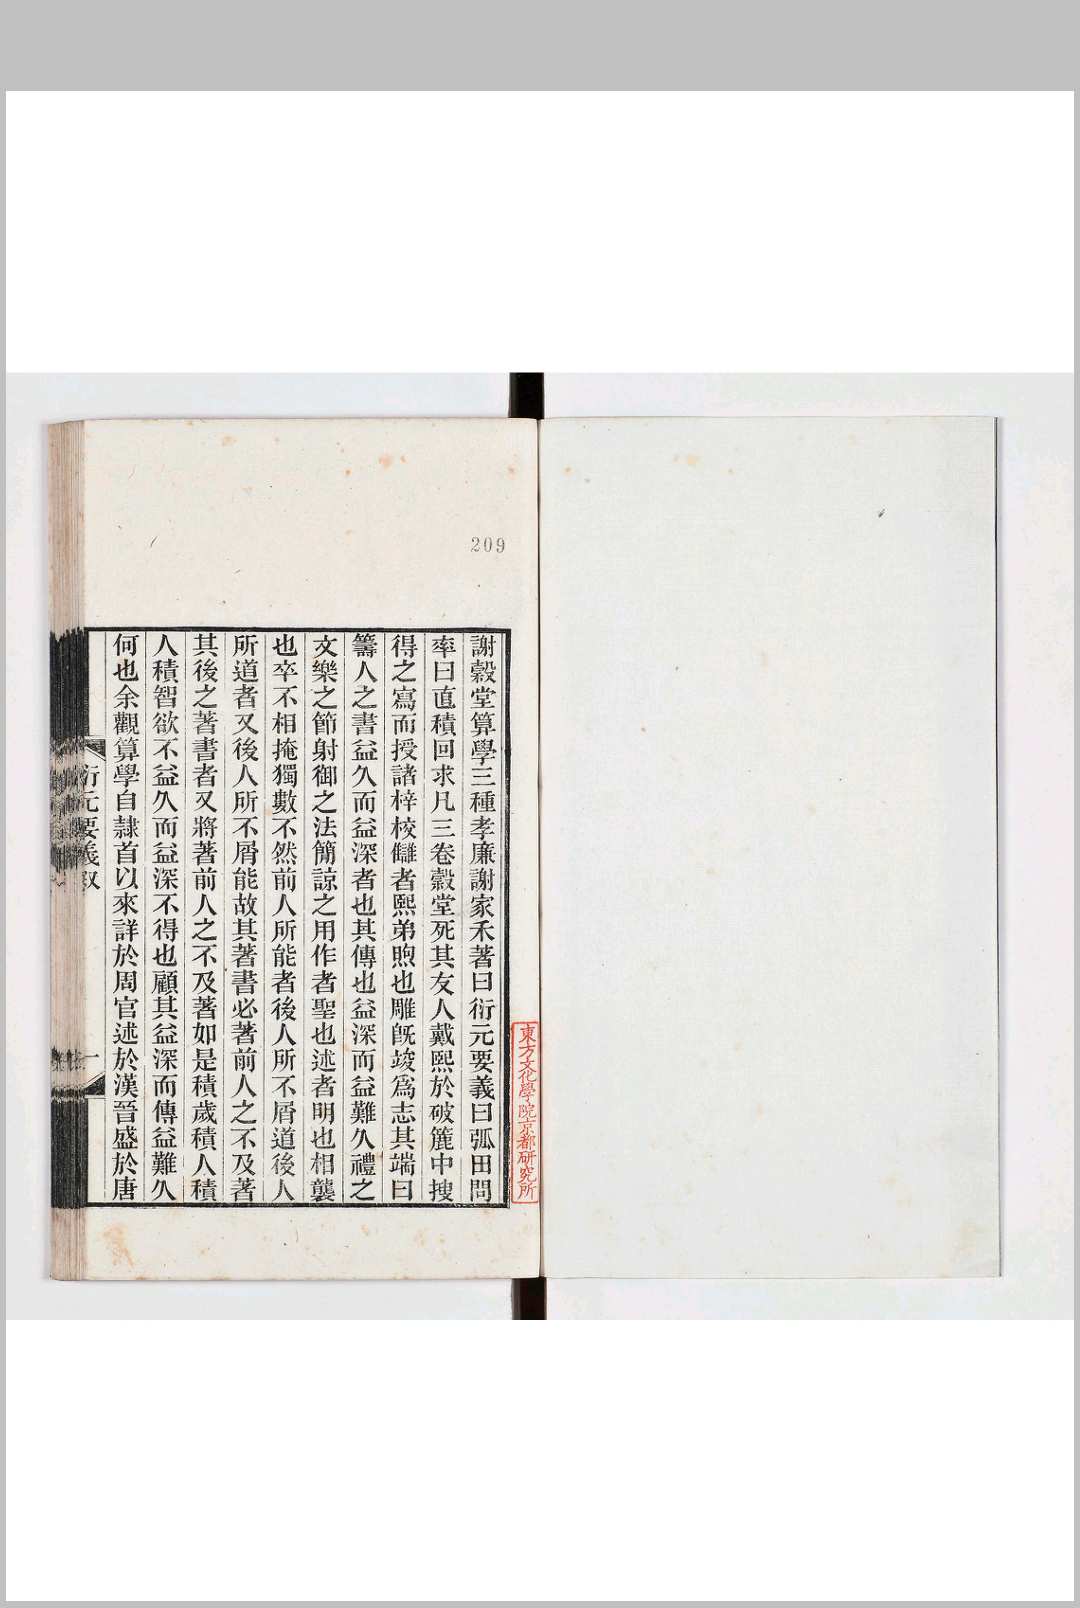 209
謝穀堂算學三種孝廉謝家禾著曰衍元要義曰弧田問
率曰直積回求凡三卷穀堂死其友人戴熙於破簏中搜
得之寫而授諸梓校讎者熙弟煦也雕旣竣爲志其端曰
籌人之書益久而益深者也其傳也益深而益難久禮之
文樂之節射御之法簡諒之用作者聖也述者明也相襲
也卒不相掩獨數不然前人所能者後人所不屑道後人
所道者又後人所不屑能故其著書必著前人之不及著
其後之著書者又將著前人之不及著如是積歲積人積
人積智欲不益久而益深不得也顧其益深而傳益難久
何也余觀算學自隸首以來詳於周官述於漢晉盛於唐
衍元要義叙
一
東方文化學院京都研究所